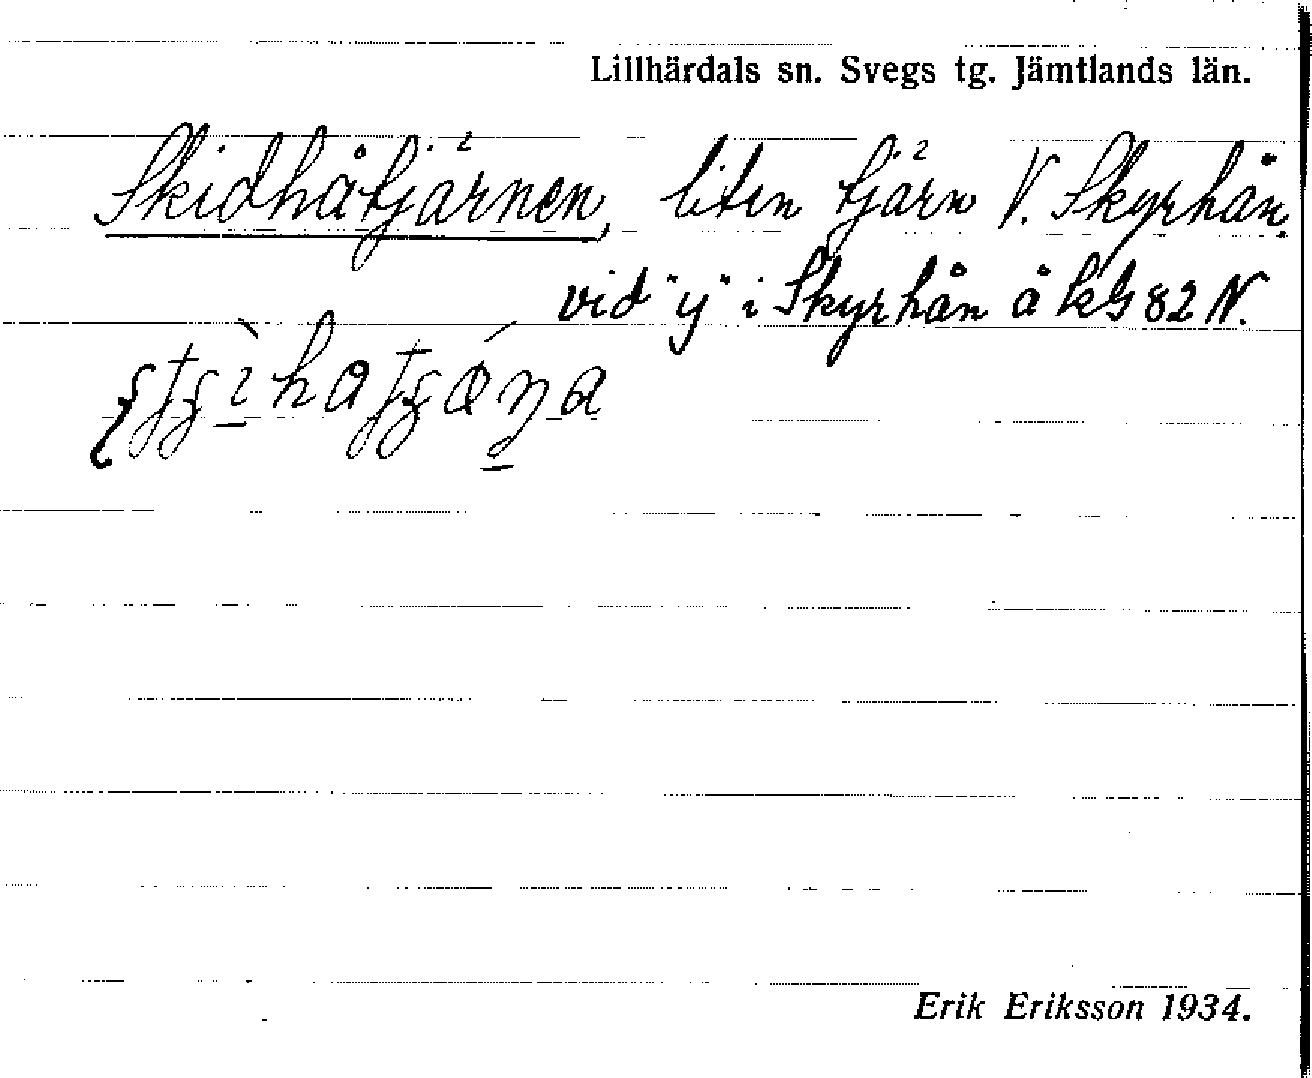 Lillhärdals sn. Svegs tg. Jämtlands län.
Skidhåtjärnen, liten tjärn V. Skyrhån
vid "y" i Skyrhån å kG 82 N.
Erik Eriksson 1934.